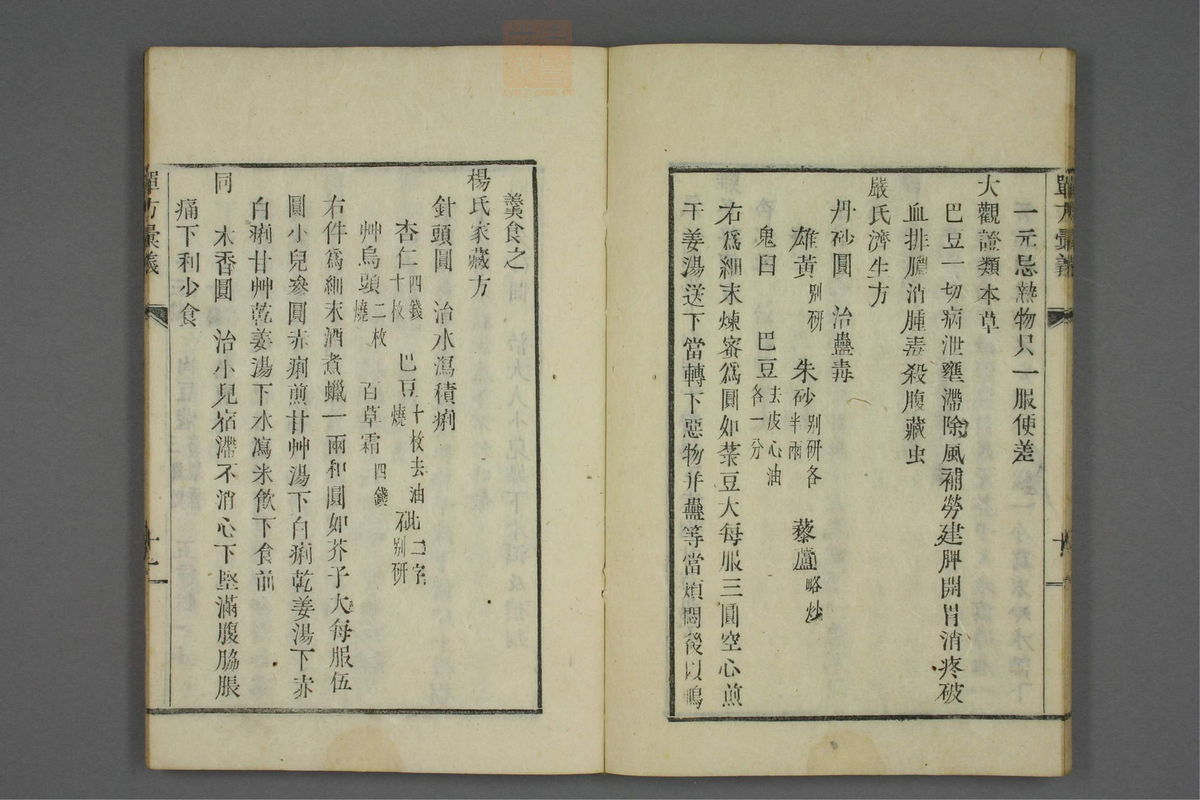 一元忌熱物只一服便差
大觀證類本草
巴豆一切病泄壅滯除風補勞建脾開胃消疼破
血排膿消腫毒殺腹藏虫
嚴氏濟生方
丹砂圓 治蠱毒
雄黃别研 朱砂别研各半兩 藜蘆略炒
鬼臼 巴豆去皮心油各一分
右爲細末煉蜜爲圓如菉豆大每服三圓空心煎
干姜湯送下當轉下惡物并蠱等當煩悶後以鴨
羹食之
楊氏家藏方
針頭圓 治水瀉積痢
杏仁四錢十枚 巴豆十枚去油燒 砒二字别研
艸烏頭二枚燒 百草霜四錢
右件爲細末酒煮蠟一兩和圓如芥子大每服伍
圓小兒參圓赤痢煎甘艸湯下白痢乾姜湯下赤
白痢甘艸乾姜湯下水瀉米飮下食前
同 木香圓 治小兒宿滯不消心下堅滿腹脇脹
痛下利少食
單方彙議